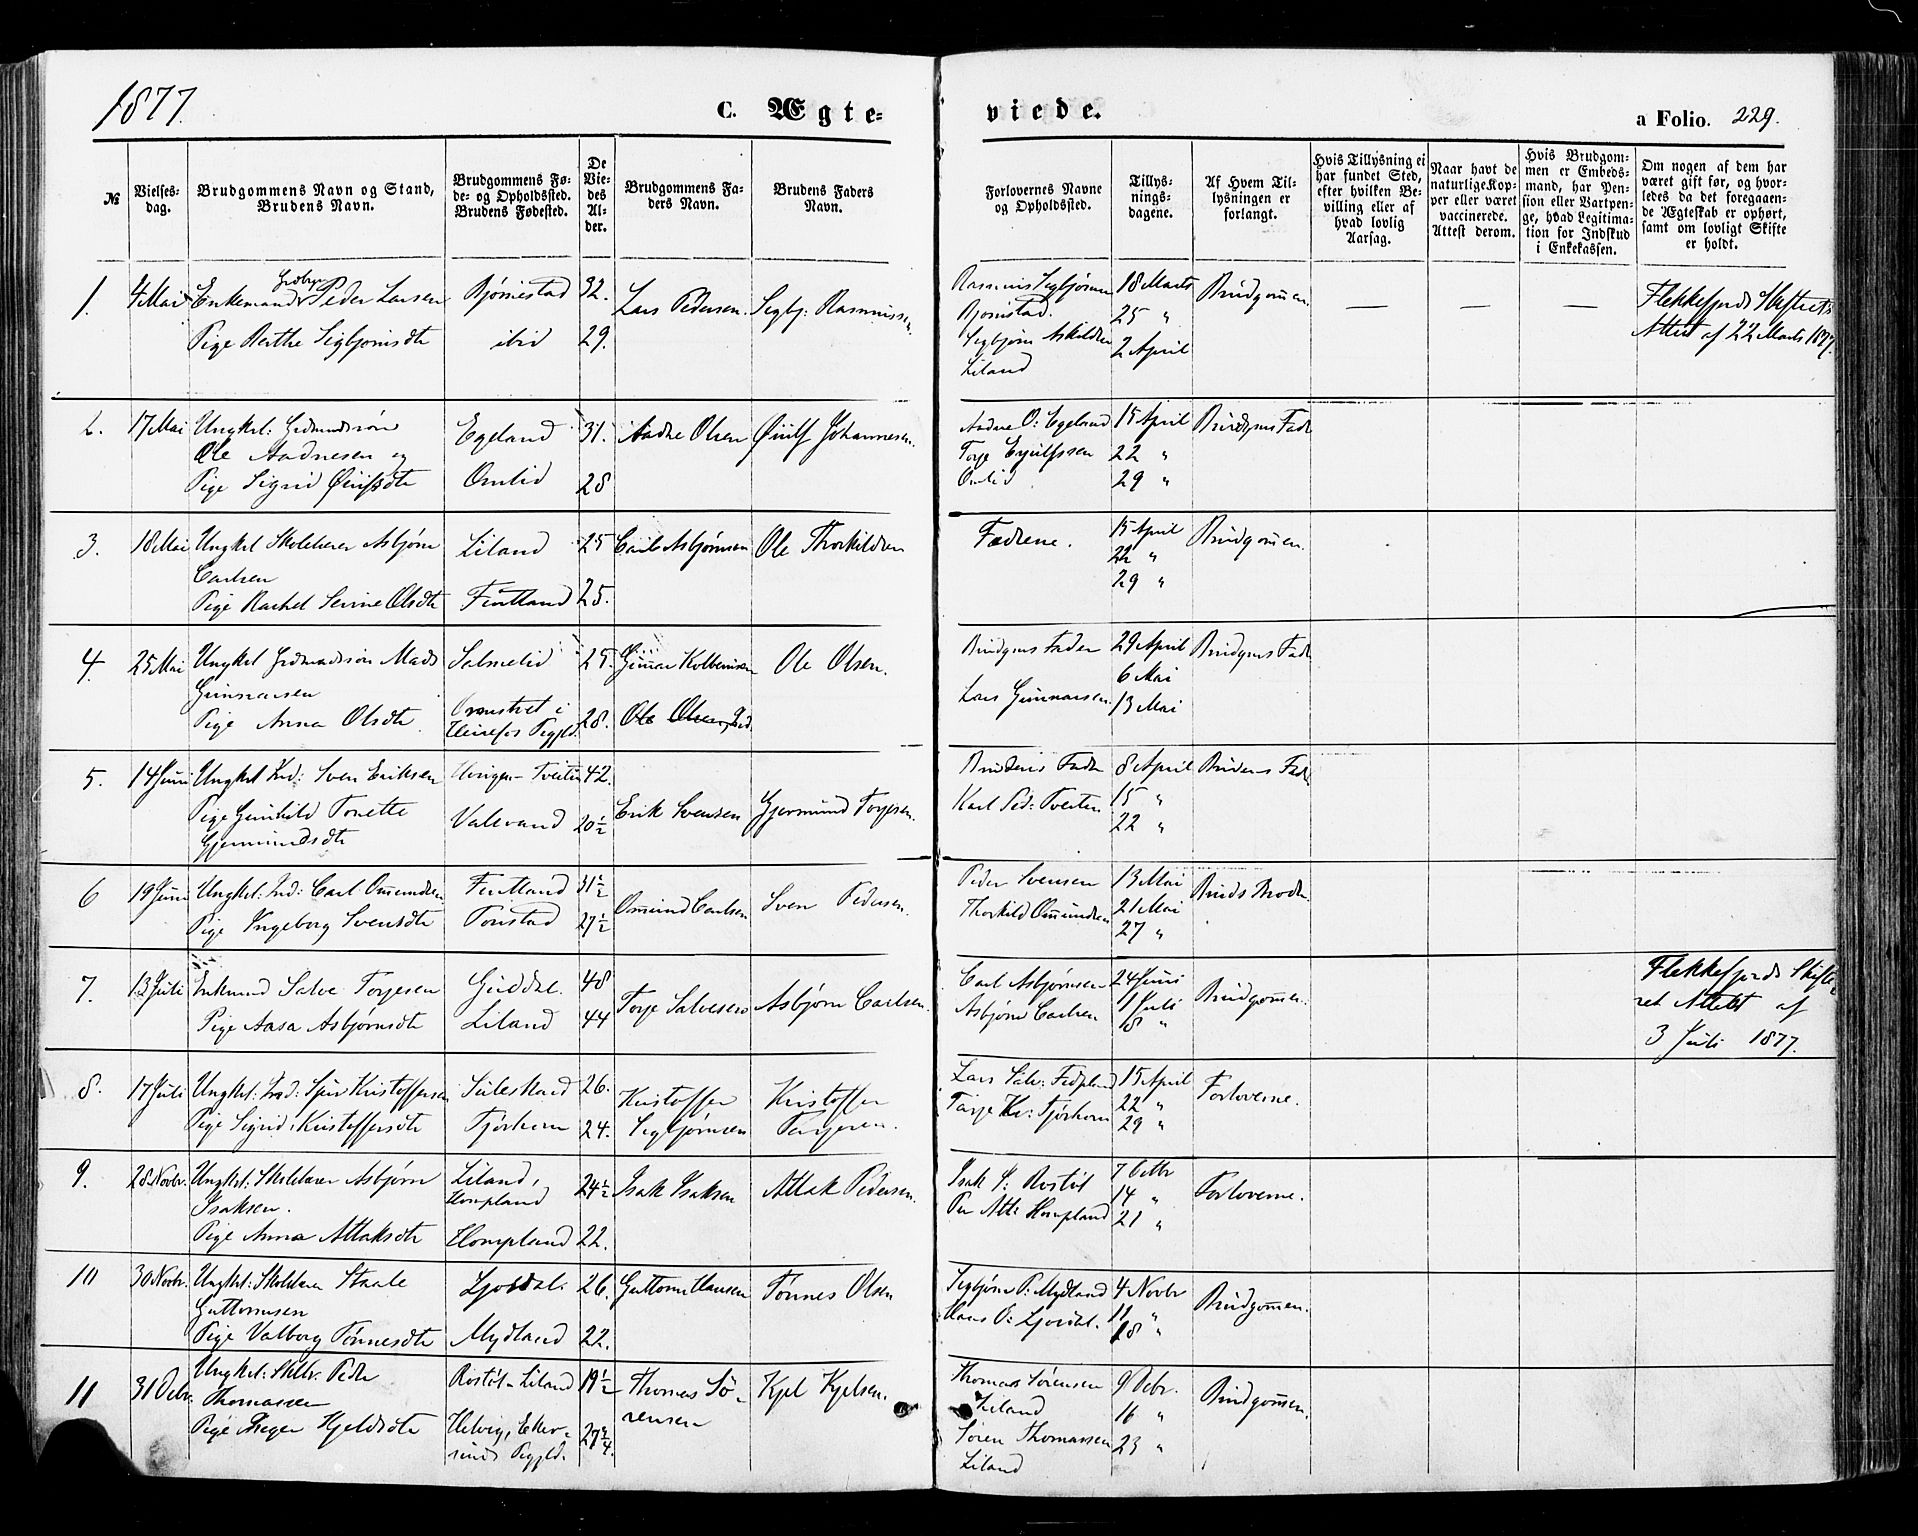 1877.
C. Ægte-
viede.
a Folio. 229.
№
Vielses-
dag.
Brudgommens Navn og Stand,
Brudens Navn.
Brudgommens Fø-
de- og Opholdssted.
Brudens Fødested.
De
Vie-
des
Al-
der.
Brudgommens Fa-
ders Navn.
Brudens Faders
Navn.
Forlovernes Navne
og Opholdssted.
Tillys-
nings-
dagene.
Af Hvem Til-
lysningen er
forlangt.
Hvis Tillysning ei
har fundet Sted,
efter hvilken Be-
villing eller af
hvad lovlig
Aarsag.
Naar havt de
naturlige Kop-
per eller været
vaccinerede.
Attest derom.
Hvis Brudgom-
men er Embeds-
mand, har Pen-
sion eller Vartpen-
ge, hvad Legitima-
tion for Indskud
i Enkekassen.
Om nogen af dem har
været gift før, og hvor-
ledes da det foregaaen-
de Ægteskab er ophørt,
samt om lovligt Skifte
er holdt.
1.
4 Mai
Enkemand Peder Larsen
Pige Berthe Sigbjørnsdtr
Bjørnestad
ibid
32.
29.
Lars Pedersen.
Segbj: Rasmussen.
Rasmus Segbjørnsen
Bjørnstad.
Segbjørn Askildsen
Liland
18 Marts
25 "
2 April
Brudgomen.
— — —
Flekkefjords Skifterets
Attest af 22 Marts 1877.
2.
17 Mai
Ungkrl: Grdmandssøn
Ole Aadnesen og
Pige Sigrid
Egeland
Omlid
31.
28
Aadne Olsen
Johannesen.
Aadne O: Egeland
Omlid
15 April
22 "
29 "
Brudgms Fadr
3.
18 Mai
Ungkrl Skolelærer Asbjørn
Carlsen
Pige Rachel Serine Olsdtr
Liland
Fintland
25
25.
Carl Asbjørnsen
Ole Thorkildsen
Fædrene.
15 April
22 "
29 "
Brudgomen.
4.
25 Mai
Ungkrl Grdmandssøn Mads
Gunnarsen
Pige Anna Olsdtr.
Salmelid
25.
28.
Gunar Kolbeinsen
Ole Olsen
Ole Olsen.
Brudgms Fader
Lars Gunnarsen.
29 April
6 Mai
13 Mai
Brudgms Fadr
5.
14 Juni
Ungkrl Ind: Sven Eriksen
Pige Gunhild Tonette
Gjermundsdtr
Valevand
42.
20½
Erik Svensen
Gjermund Torjesen.
Brudens Fader
Karl Ped: Tveiten
8 April
15 "
22 "
Brudens Fadr
6
19 Juni
Ungkrl: Ind: Carl Omundsen
Pige Ingeborg Svensdtr
Fintland
Tonstad
31½
27½
Omund Carlsen
Sven Pedersen.
Peder Svensen
Thorkild Omundsen
13 Mai
21 Mai
27 "
Bruds Brodr.
7.
13 Juli
Enkemand Salve Torjesen
Pige Aasa Asbjørnsdtr
Guddal.
Liland
48
44
Torje Salvesen
Asbjørn Carlsen.
Carl Asbjørnsen
Asbjørn Carlsen
24 Juni
1 Juli
18 "
Brudgomen.
Flekkefjords Skifte-
ret Attest af
3 Juli 1877.
8.
17 Juli
Ungkrl: Ind: Kristoffersen
Pige Sigrid Kristoffersdtr
Suleskard
Tjørhom
26.
24.
Kristoffer
Segbjørnsen
Kristoffer
Tarjesen.
Tarje Kr: Tjørhom
15 April
22 "
29 "
Forloverne.
9.
28 Novbr.
Ungkrl: Skolelærer Asbjørn
Isaksen.
Pige Anna Attaksdtr
Liland,
Hompland
Hompland
24½
22.
Isak Isaksen
Attak Pedersen.
Per Att: Hompland
7 Octbr
14 "
21 "
Forloverne.
10
30 Novbr.
Ungkrl: Skolelærer Staale
Guttormsen
Pige Valborg Tønnesdtr
Ljosdal.
Mydland
26.
22.
Guttorm Hansen
Tønnes Olsen
Segbjørn P: Mydland
Hans O: Ljosdal.
4 Novbr
11 "
18 "
Brudgomen.
11
31 Decbr.
Ungkrl: Peder
Thomassen
Kjeldsdtr
Rostøl - Liland
Helvig, Eker-
sund
19½
27¾.
Thomas Sø-
rensen
Kjel Kjelsen.
Thomas Sørensen
Liland
Søren Thomassen
Liland
9 Decbr.
16 "
23 "
Brudgomen.